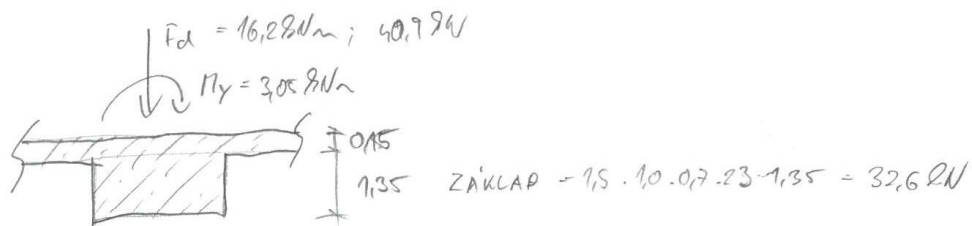 Fd = 16,2 kNm ; 40,9 kN
My = 3,05 kNm
0,15
1,35 ZÁKLAD - 1,5 . 1,0 . 0,7 . 23 . 1,35 = 32,6 kN